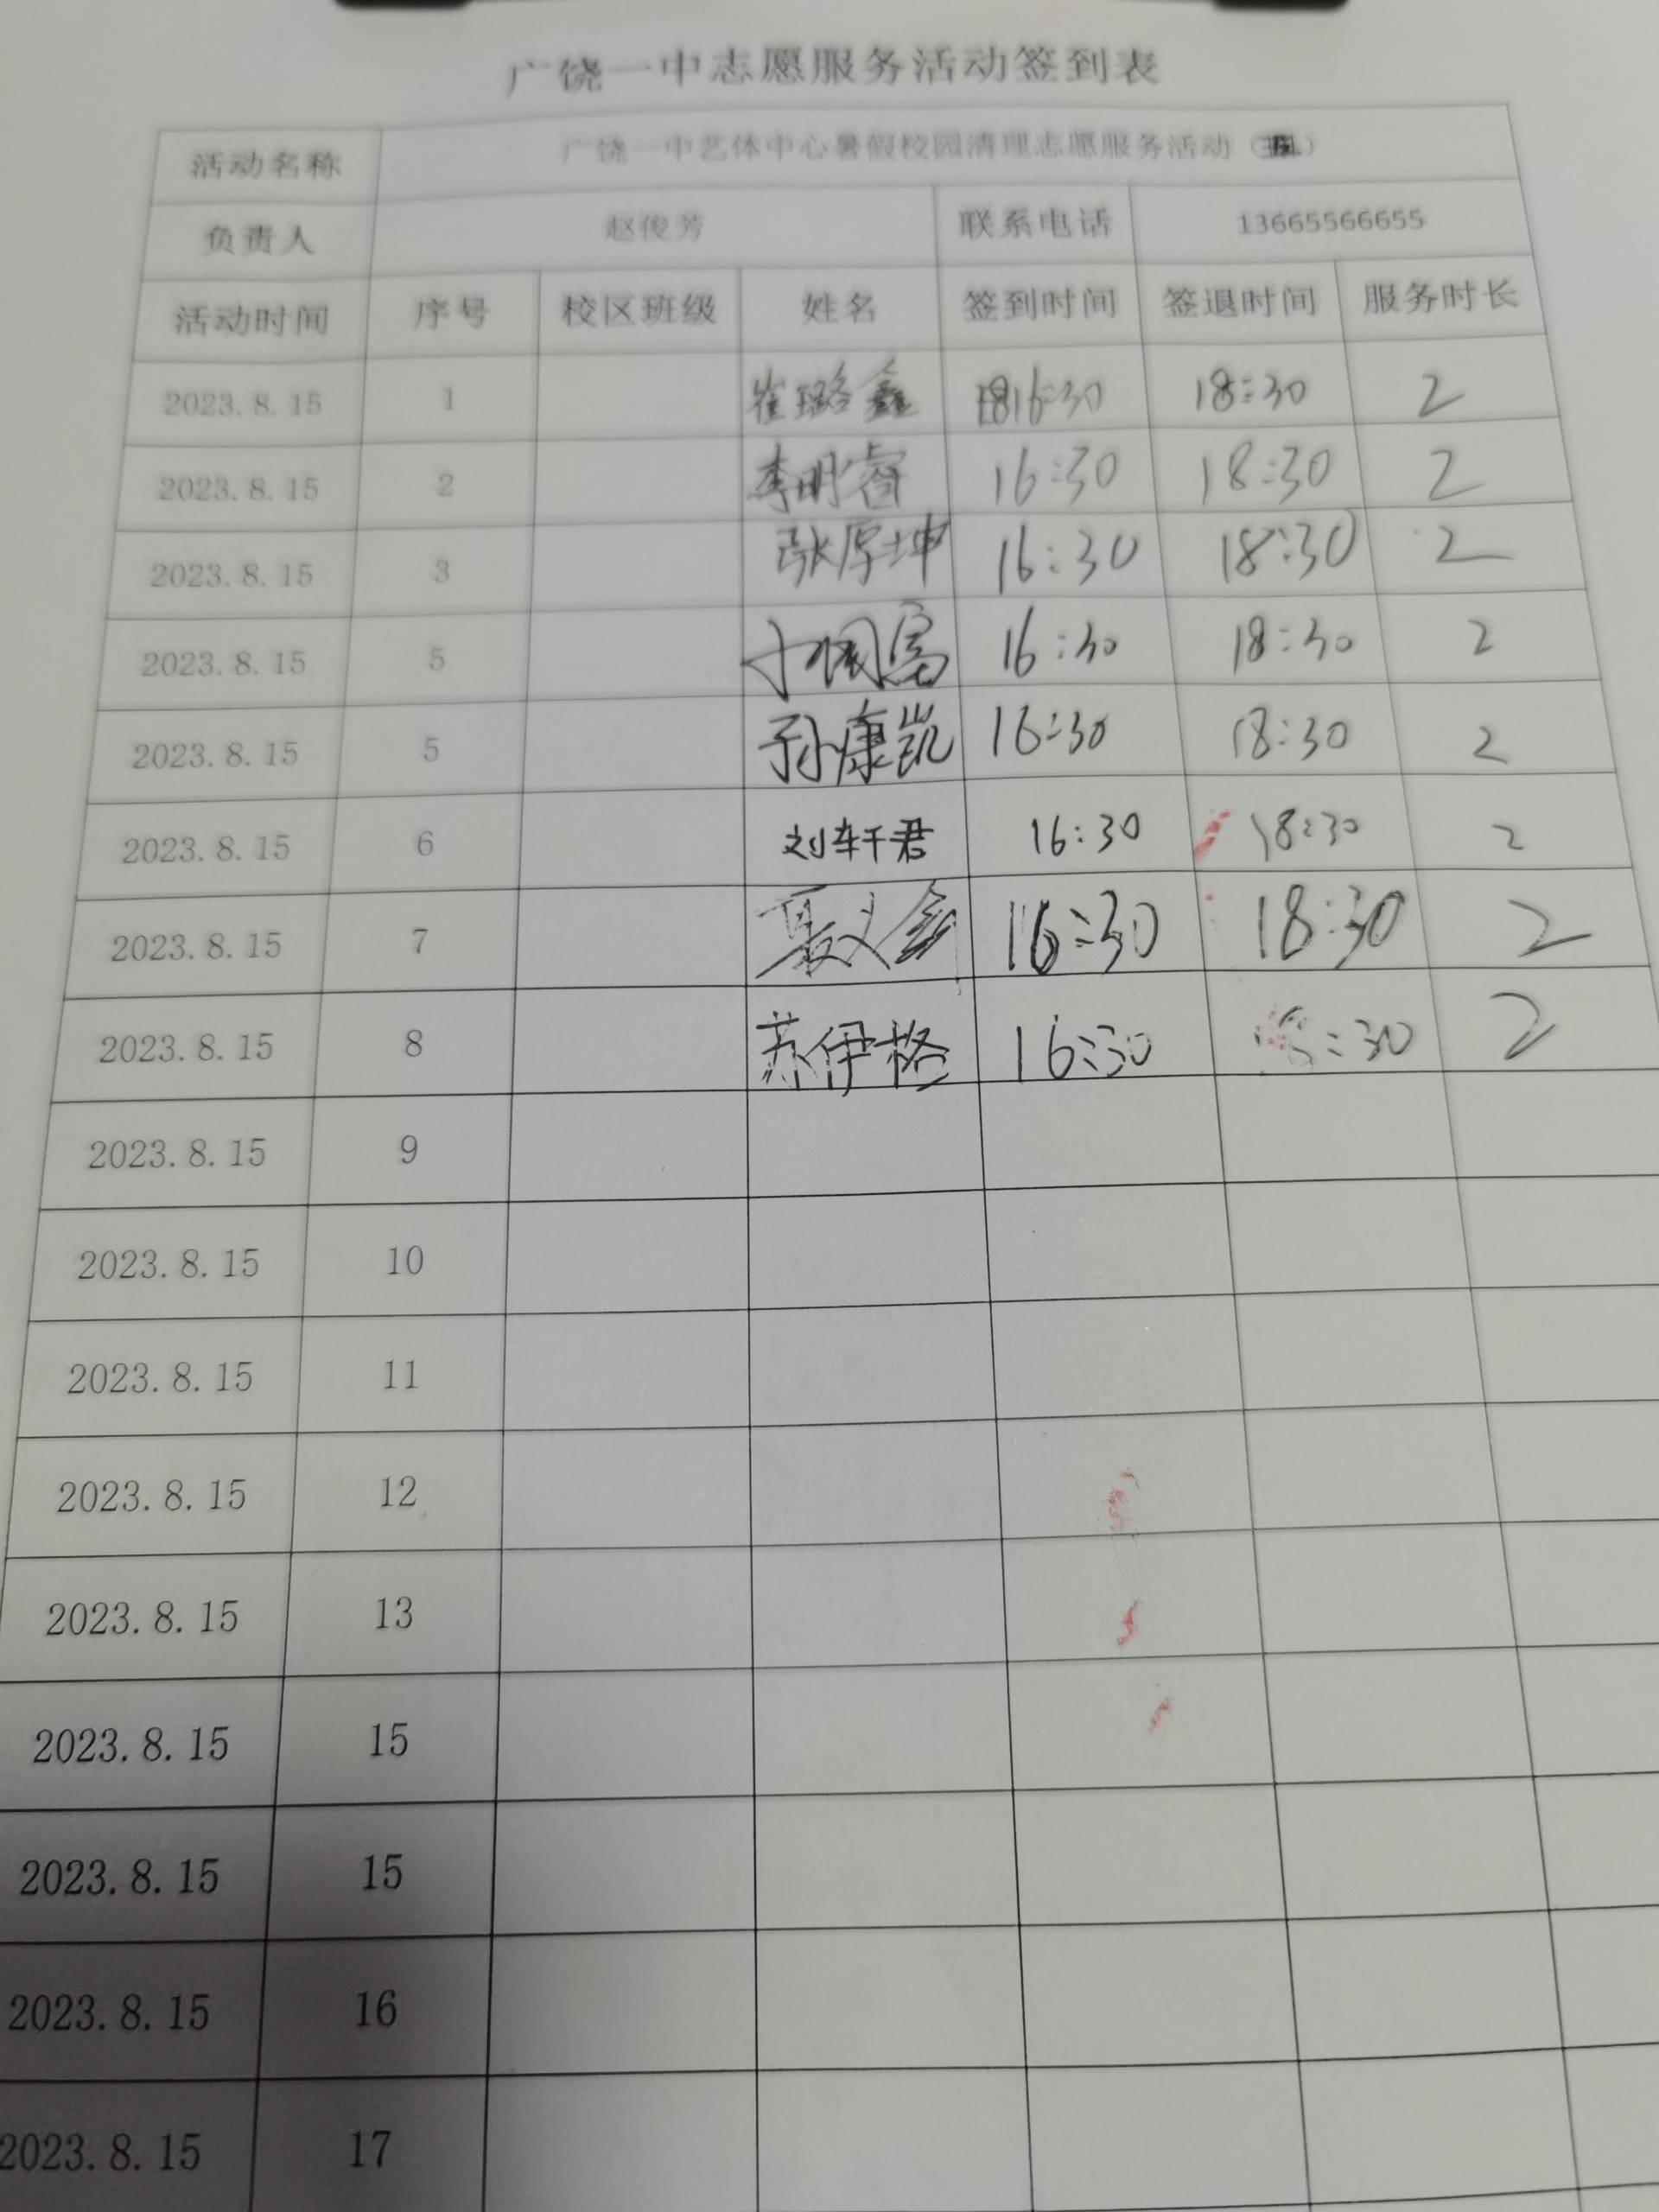 广饶一中志愿服务活动签到表
活动名称 广饶一中艺体中心暑假校园清理志愿服务活动
负责人 赵俊芳 联系电话 13665566655
活动时间 序号 校区班级 姓名 签到时间 签退时间 服务时长
2023.8.15 1 崔璐鑫 16:30 18:30 2
2023.8.15 2 李明睿 16:30 18:30 2
2023.8.15 3 张厚坤 16:30 18:30 2
2023.8.15 5 16:30 18:30 2
2023.8.15 5 孙康凯 16:30 18:30 2
2023.8.15 6 刘轩君 16:30 18:30 2
2023.8.15 7 聂义鑫 16:30 18:30 2
2023.8.15 8 苏伊格 16:30 :30 2
2023.8.15 9
2023.8.15 10
2023.8.15 11
2023.8.15 12
2023.8.15 13
2023.8.15 15
2023.8.15 15
2023.8.15 16
2023.8.15 17